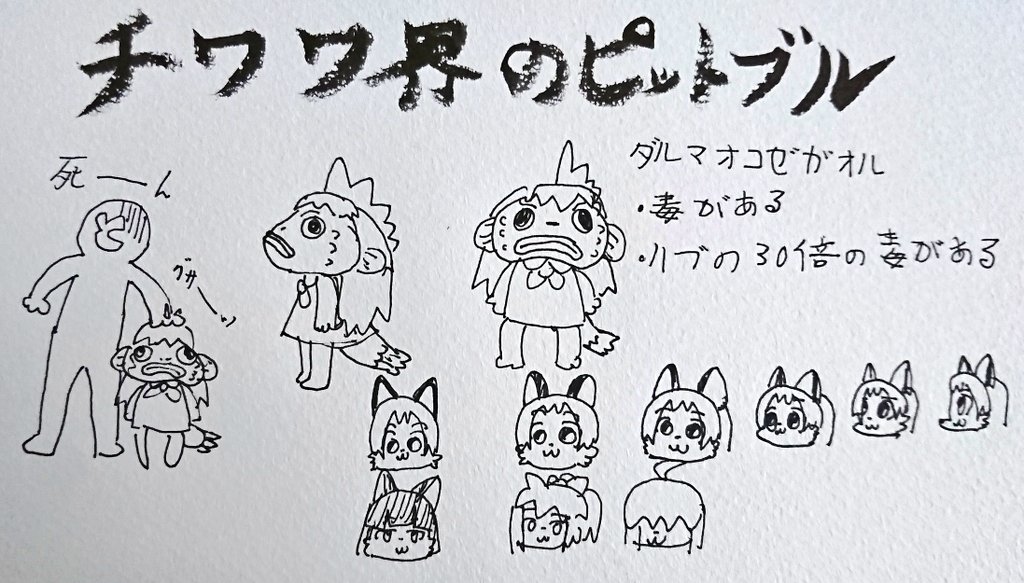 チワワ界のピットブル
ダルマオコゼがオル
・毒がある
・ハブの30倍の毒がある
死ーん
グサーッ